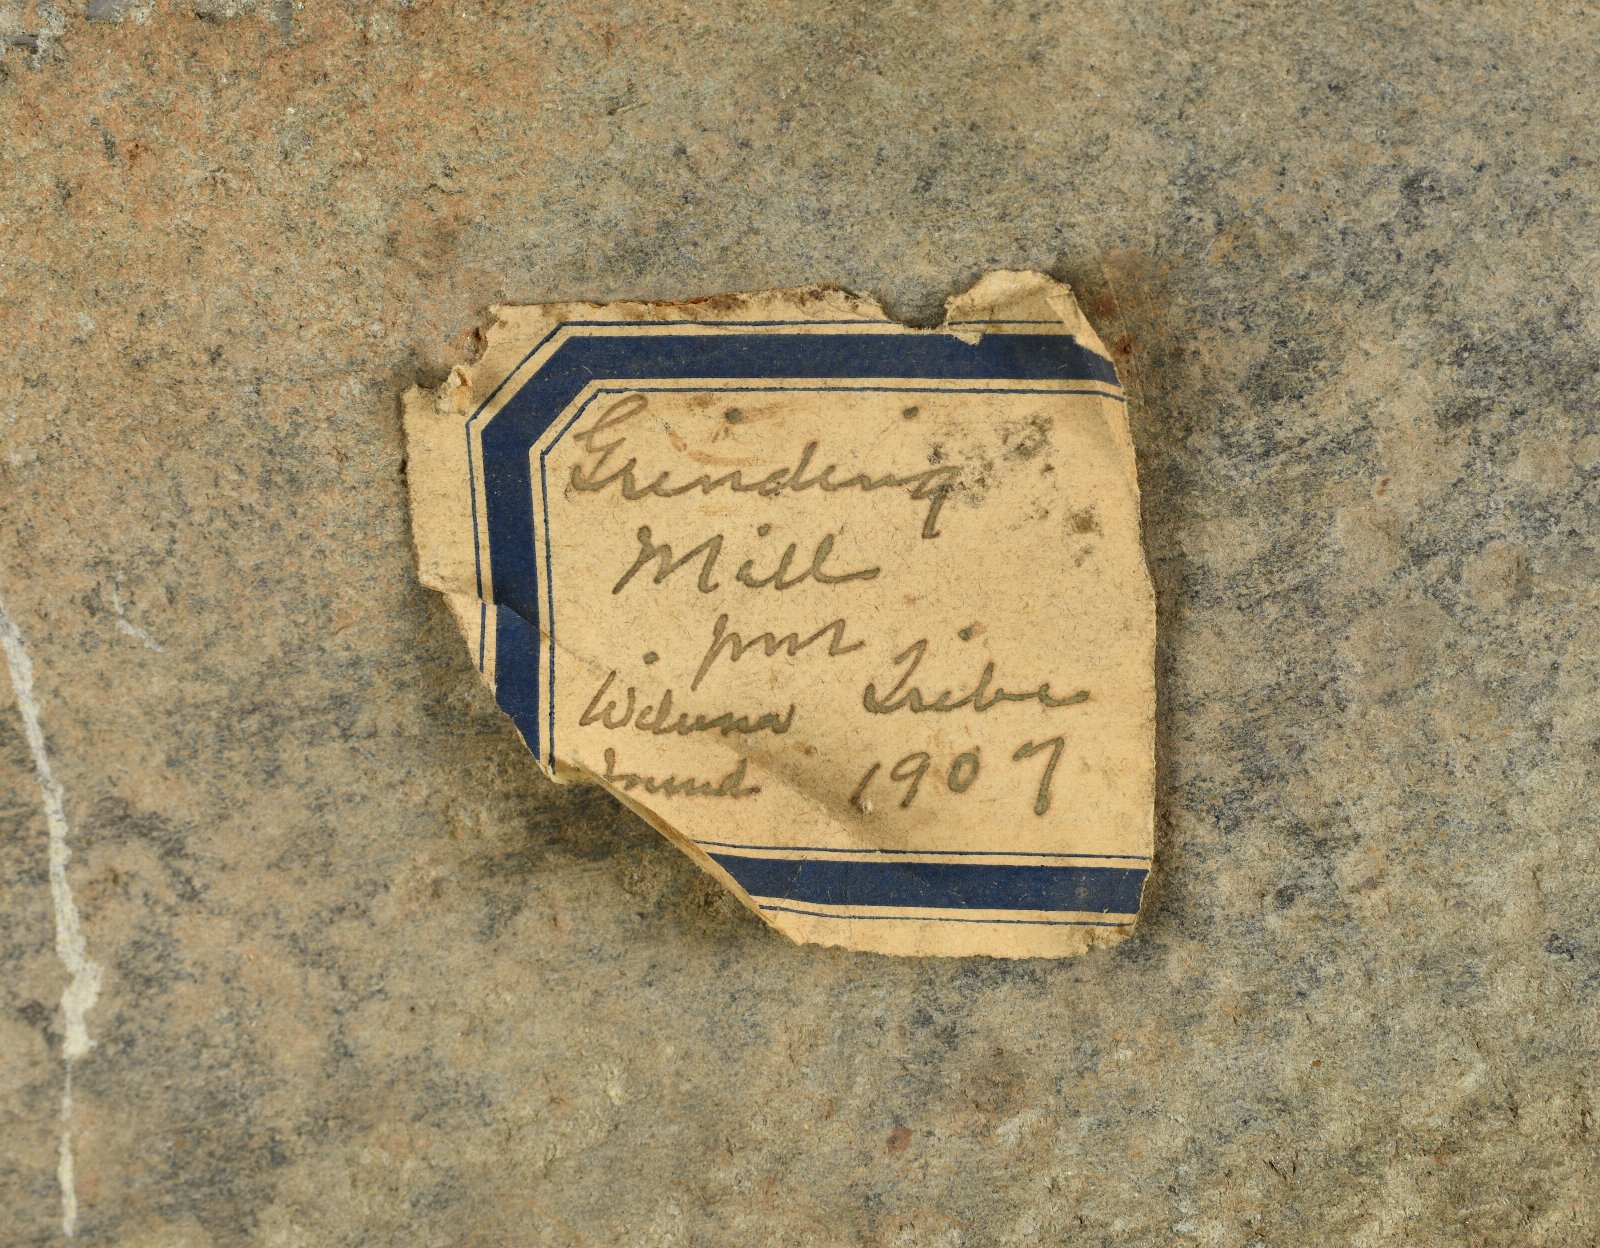 Grinding
Mill
Wiluna Tribe
Found 1907